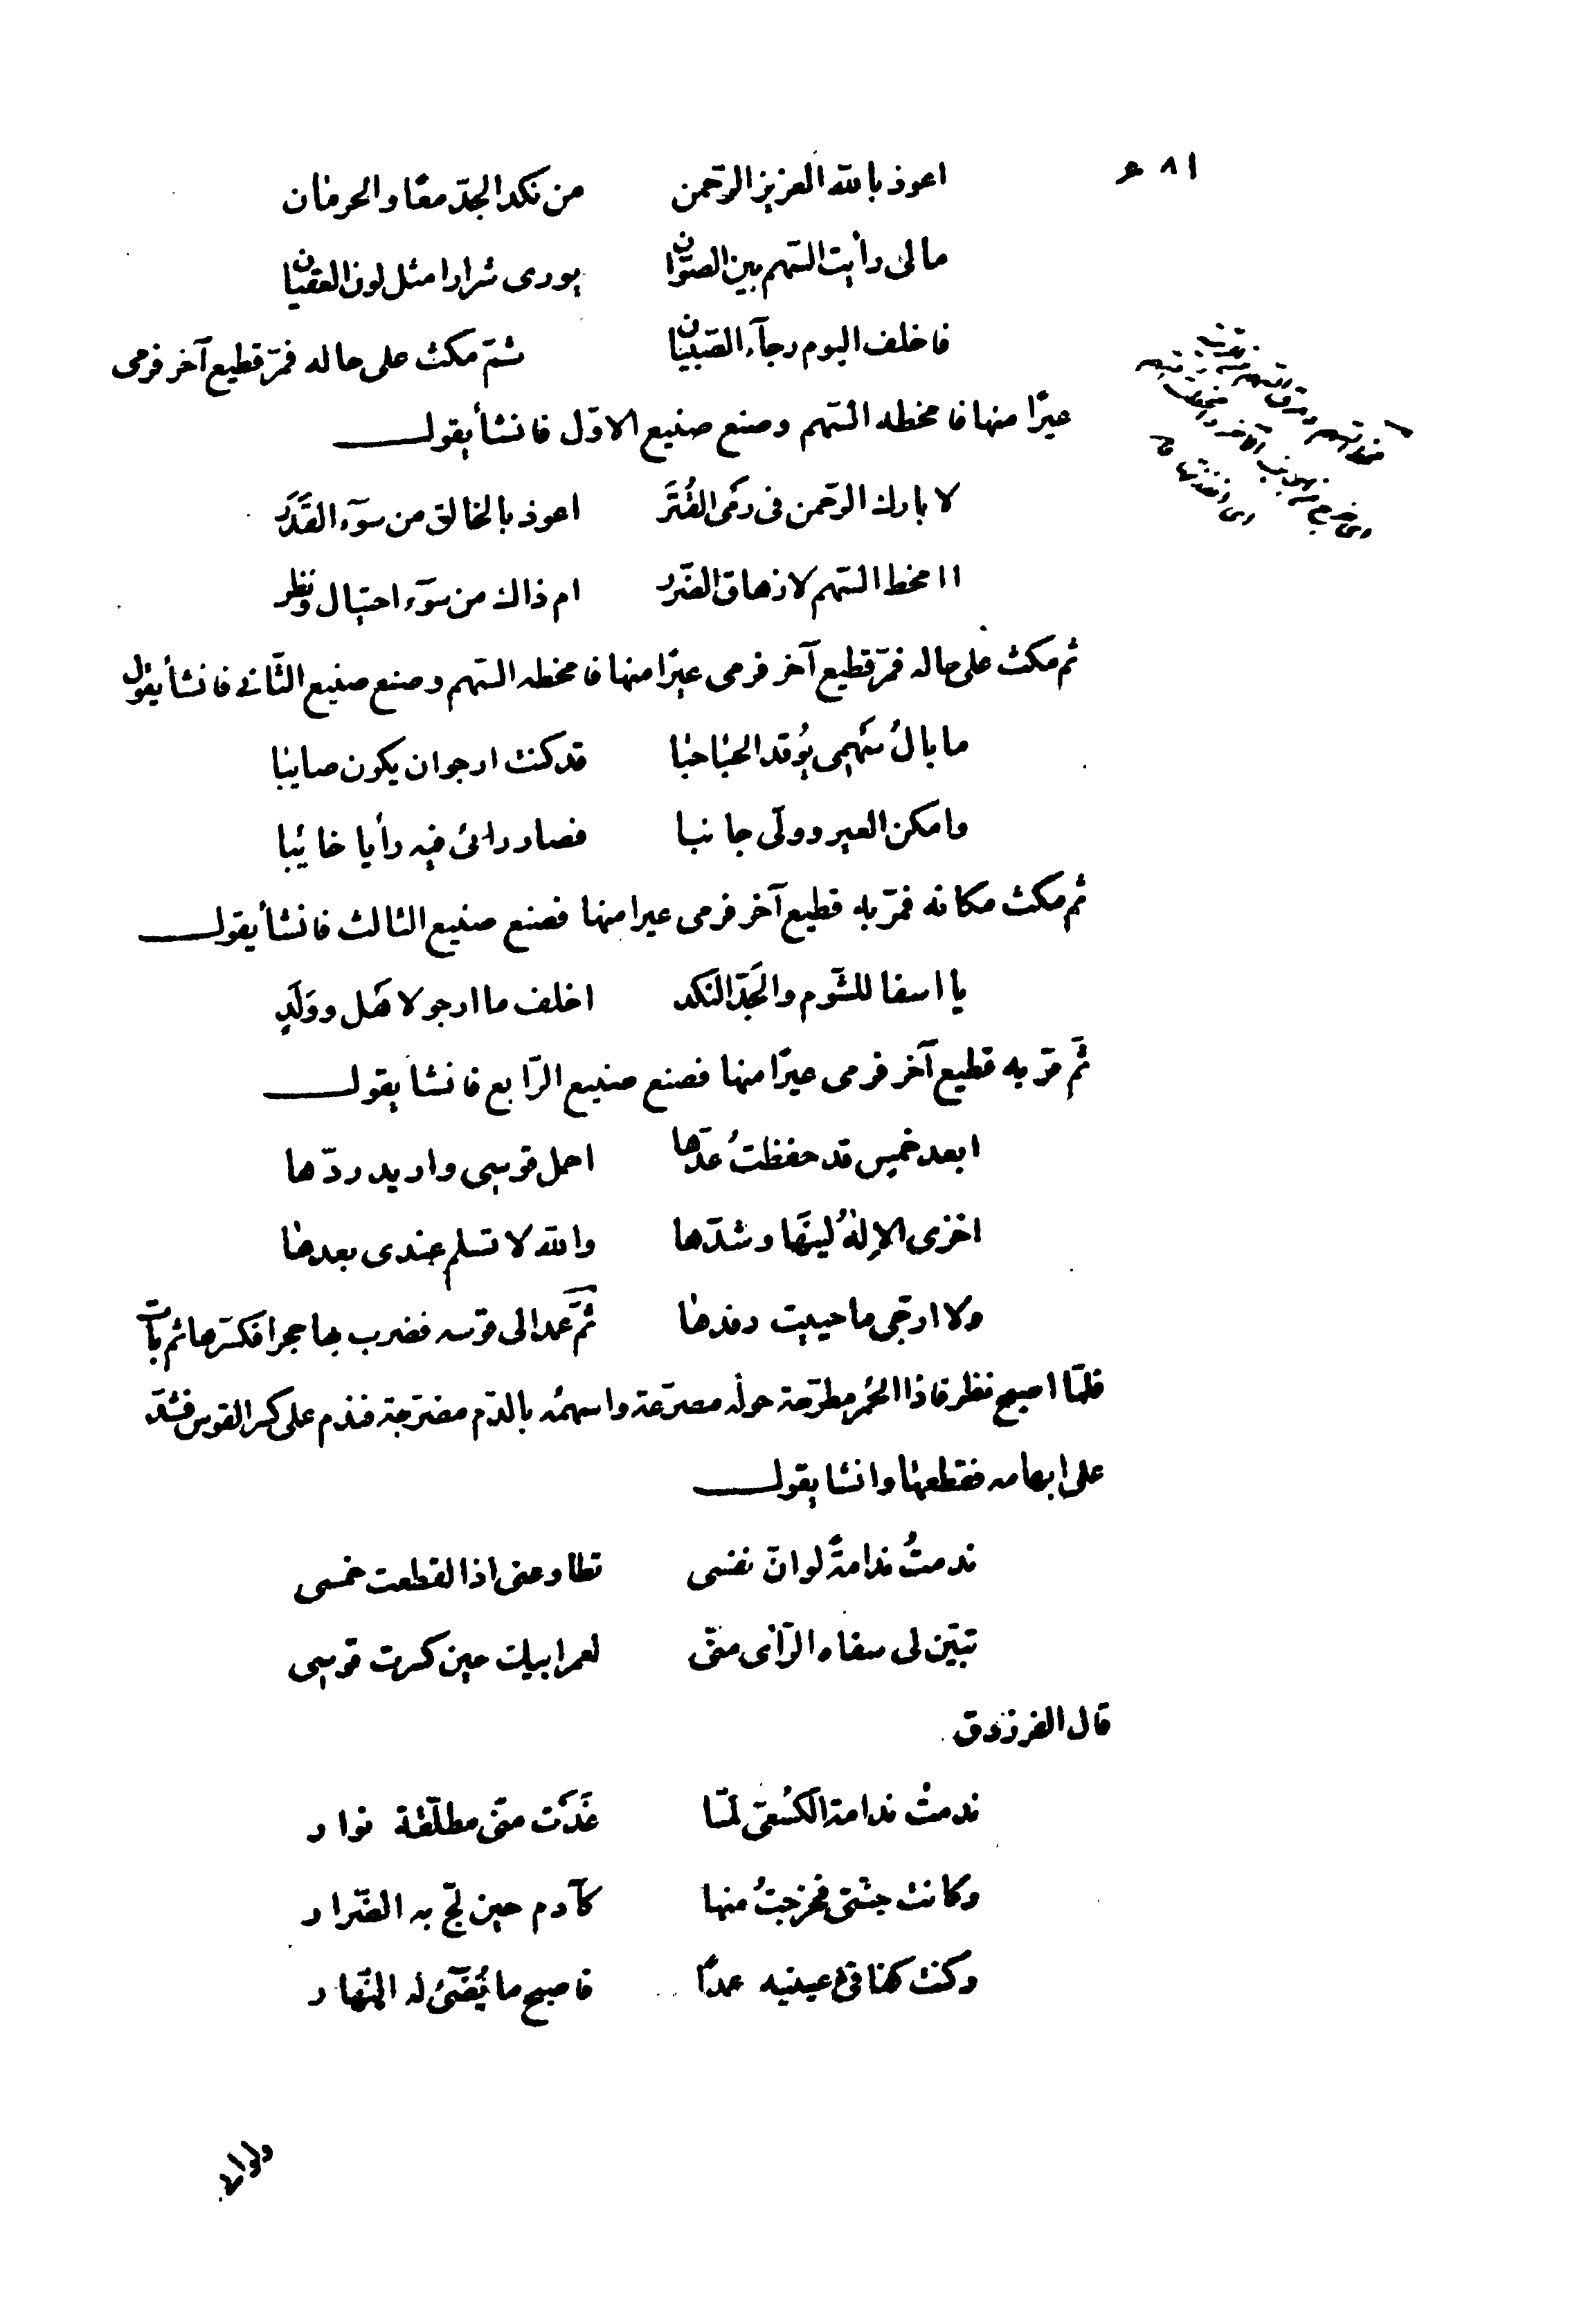 ٨١
اعوذ بالله العزيز الرّحمن من نكد الجدّ معًا والحرمان
مالى رأيت السّهم بين الصوّان يورى شرارا مثل لون العقيان
فاخلف اليوم رجآء الصّبيان ثمّ مكث على حاله فمرّ قطيع آخر فرمى
عيرًا منها فامخطه السّهم وصنع صنيع الاوّل فانشأ يقول
لا بارك الرّحمن فى رمى القُتَر اعوذ بالخالق من سوٓء القَدَر
اامخط السّهم لازهاق الضّرر ام ذاك من سوٓء احتيال ونظر
ثم مكث على حاله فمرّ قطيع آخر فرمى عيرًا منها فامخطه السّهم وصنع صنيع الثّانى فانشأ يقول
ما بالُ سَهمى يُوقد الحباحبا قد كنت ارجوان يكون صايبا
وامكن العير وولّى جانبا فصار رائى فيه رأيا خائبا
ثم مكث مكانه فمرّ به قطيع آخر فرمى عيرا منها فصنع صنيع الثالث فانشأ يقول
يا اسفا للشّوم والجَدّ النّكد اخلف ما ارجو لاهَل ووَلَدٍ
ثمّ مرّ به قطيع آخر فرمى عيرًا منها فصنع صنيع الرّابع فانشا يقول
ابعد خميس قد حفظتُ عدّها احمل قوسى واريد ردّها
اخزى الإلهُ لينَها وشدّها والله لا تسلم عندى بعدها
ولا ارجّى ما حييت رفدها ثمّ عمد الى قوسه فضرب بها حجرا فكسّرها ثم بات
فلمّا اصبح نظر فاذا الحُمر مطرّحة حوله مصرّعة واسهمُه بالدّم مضرّجة فندم على كسر القوس فشدّ
على ابهامه فقطعها وانشا يقول
ندمتُ ندامةً لوانّ نفسى تطاوعنى اذا لقطعت خمسى
تبيّن لى سفاه الرّأى منّى لعمر ابيك حين كسرت قوسى
قال الفرزدق
ندمتُ ندامة الكُسَعىّ لمّا غَدَت منّى مطلّقة نوار
وكانت جنّتى فخرجتُ منها كآدم حين لجّ به الضّرار
وكنت كفاقئ عينيه عمدًا فاصبح ما يُضَىٓءُ له النّهار